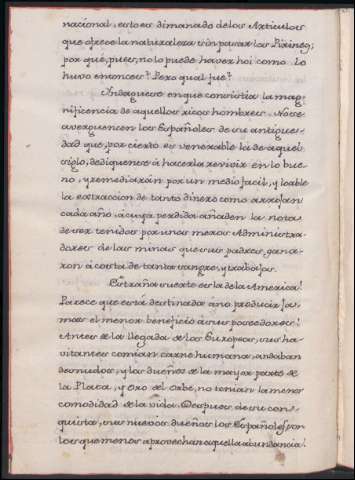 nacional, esto es dimanado de los Artículos
que ofrece la naturaleza sin pasar los Pirineos;
por qué, pues, no lo puede haver hoi como lo
huvo entonces? Pero qual fue?
Indaguese en que consistia la mag-
nificencia de aquellos ricos hombres. No se
averguencen los Españoles de su antigue-
dad que por cierto es venerable la de aquel
siglo, dediquense á hacerla revivir en lo bue-
no, y remediarán por un medio facil, y loable
la extraccion de tanto dinero como arrojan
cada año, á cuya perdida añaden la nota
de ser tenidos por unos meros Administra-
dores de las minas que sus padres gana-
ron á costa de tanta sangre, y trabajos.
Extraña suerte es la de la America!
Parece que está destinada á no producir ja-
mas el menor beneficio á sus poseedores!
Antes de la llegada de los Europeos, sus ha-
vitantes comian carne humana, andaban
desnudos, y los dueños de la mayor parte de
la Plata, y oro del orbe, no tenian la menor
comodidad de la vida. Despues de su con-
quista, sus nuevos dueños los Españoles, son
los que menos aprovechan aquella abundancia!